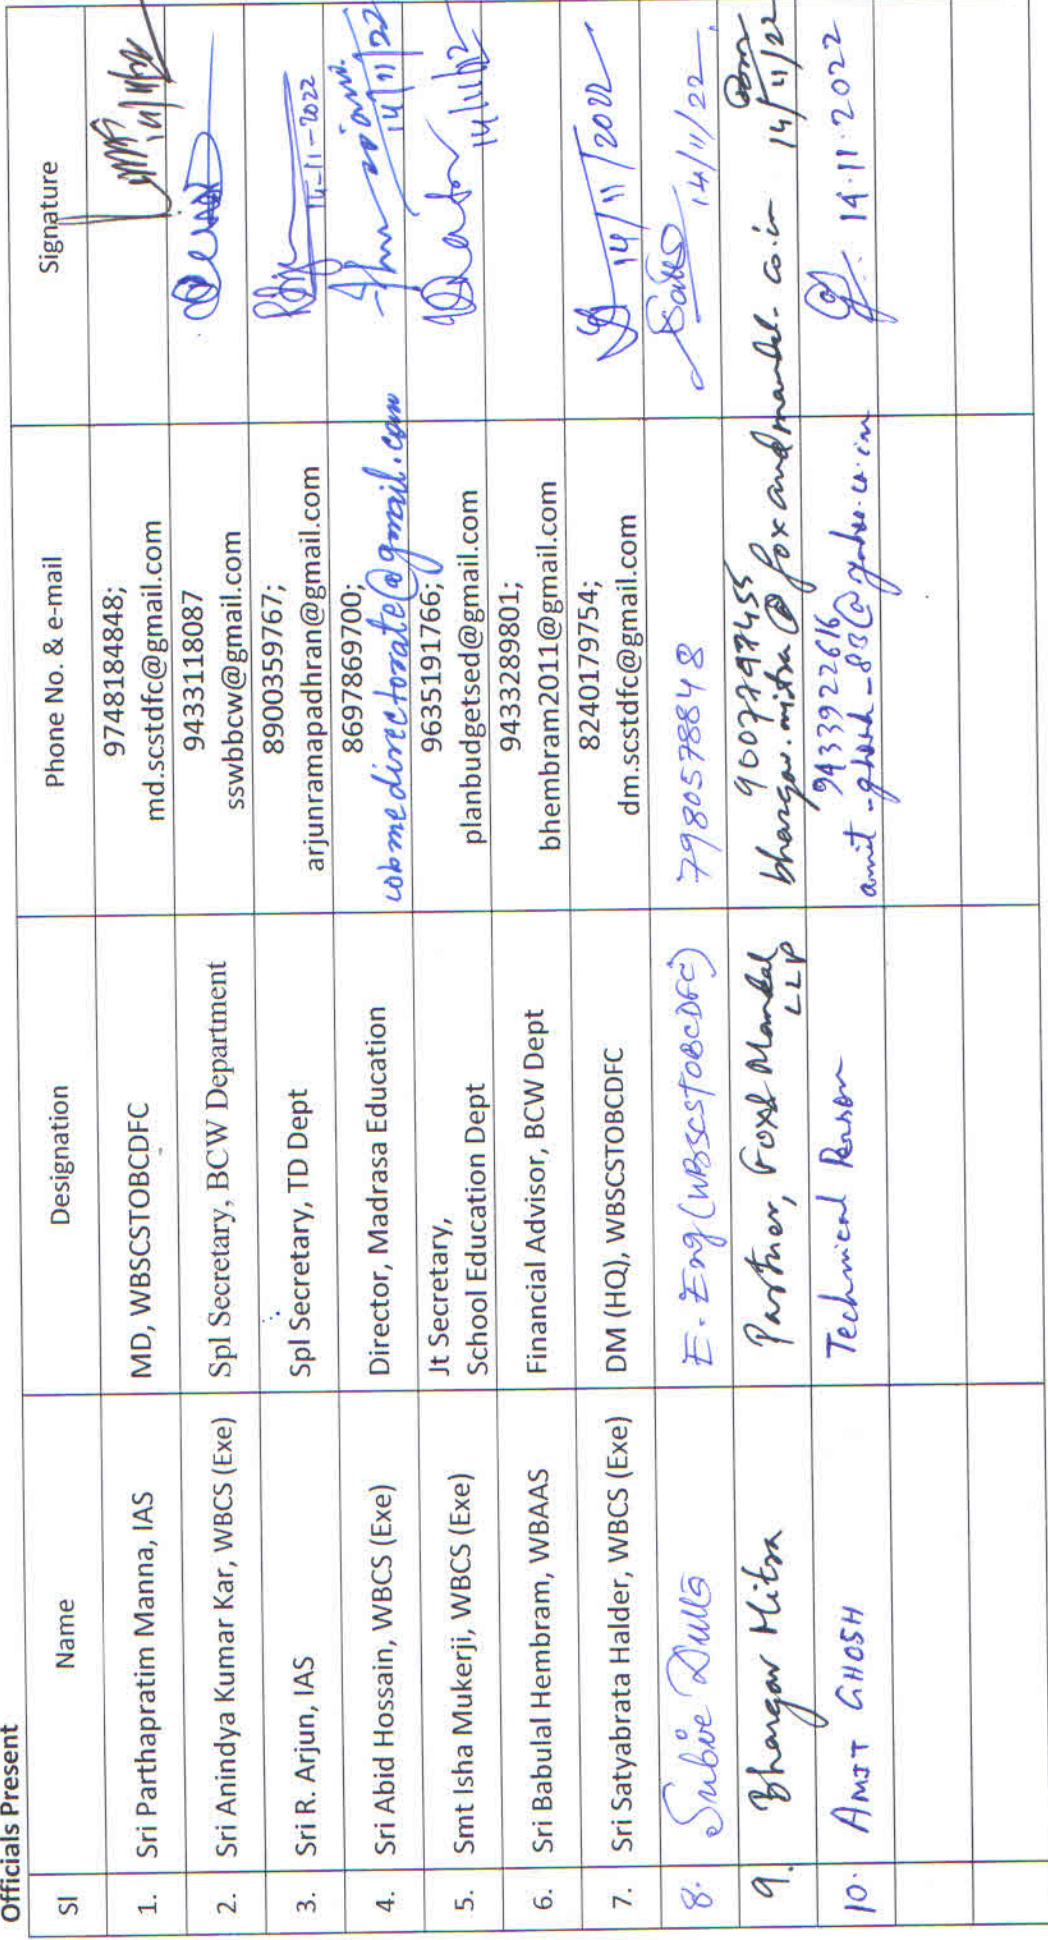 Officials Present
Sl Name Designation Phone No. & e-mail Signature
1. Sri Parthapratim Manna, IAS MD, WBSCSTOBCDFC 9748184848;
md.scstdfc@gmail.com
14/11/22
2. Sri Anindya Kumar Kar, WBCS (Exe) Spl Secretary, BCW Department 9433118087
sswbbcw@gmail.com
3. Sri R. Arjun, IAS Spl Secretary, TD Dept 8900359767;
arjunramapadhran@gmail.com
14-11-2022
4. Sri Abid Hossain, WBCS (Exe) Director, Madrasa Education 8697869700;
wbmedirectorate@gmail.com
14/11/22
5. Smt Isha Mukerji, WBCS (Exe) Jt Secretary,
School Education Dept
9635191766;
planbudgetsed@gmail.com
14/11/22
6. Sri Babulal Hembram, WBAAS Financial Advisor, BCW Dept 9433289801;
bhembram2011@gmail.com
7. Sri Satyabrata Halder, WBCS (Exe) DM (HQ), WBSCSTOBCDFC 8240179754;
dm.scstdfc@gmail.com
14/11/2022
8. E. Eng (WBSCSTOBCDFC) 7980578848 14/11/22
9. Bhargav Mitra Partner, Fox & Mandal
LLP
9007797455
bhargav.mitra@foxandmandal.co.in
14/11/22
10. AMIT GHOSH Technical Person 9433922616
amit_ghosh_83@yahoo.co.in
14.11.2022